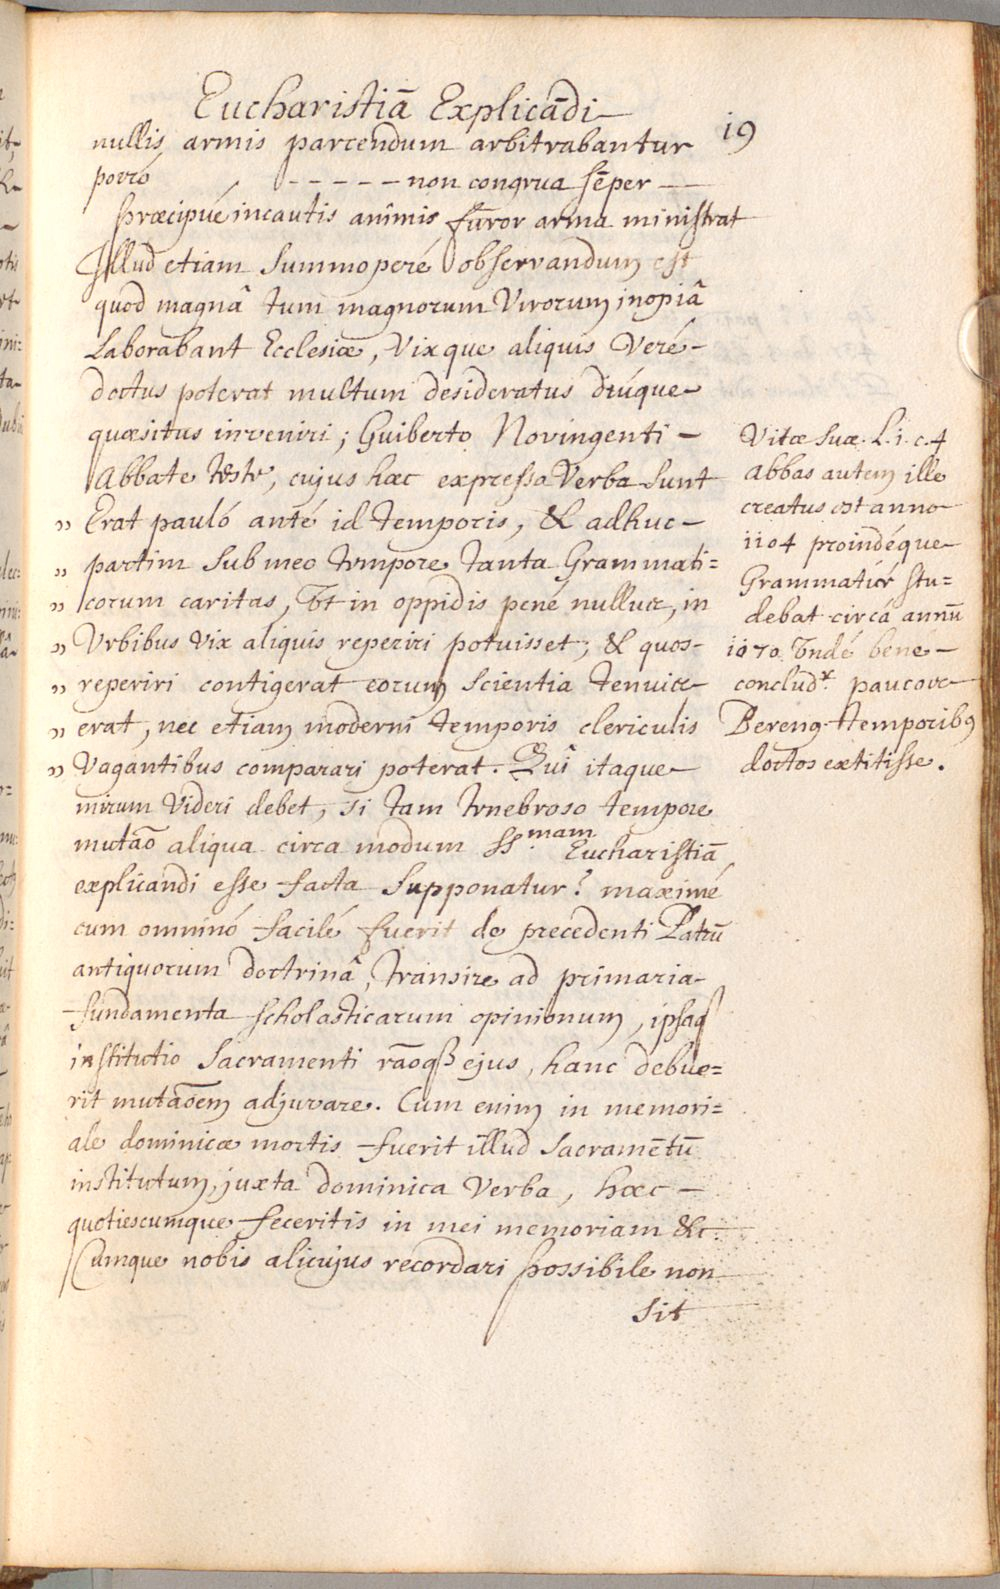 Eucharistiā Explicādi
19
nullis armis parcendum arbitrabantur
porró - - - - - non congrua sēper
præcipué incautis animis furor arma ministrat
Illud etiam Summoperé observandum est
quod magnâ tum magnorum Virorum inopiâ
Laborabant Ecclesiæ, Vixque aliquis Veré
doctus poterat multum desideratus diúque
quæsitus inveniri; Guiberto Novingenti
Abbate teste, cujus hæc expressa Verba sunt
„ Erat pauló anté id temporis, & adhuc
„ partim sub meo tempore tanta Grammati=
„ corum caritas, Ut in oppidis pené nullus, in
„ Urbibus vix aliquis reperiri potuisset; & quos
„ reperiri contigerat eorum Scientia tenuis
„ erat, nec etiam moderni temporis clericulis
„ Vagantibus comparari poterat. Quî itaque
mirum Videri debet, si tam tenebroso tempore
mutaō aliqua circa modum SS.mam Eucharistiā
explicandi esse facta Supponatur? maximé
cum omninó facilé fuerit de precedenti Patrū
antiquorum doctrinâ, transire ad primaria
fundamenta scholasticarum opinionum, ipsaq
institutio Sacramenti raōqȝ ejus, hanc debue=
rit mutaōem adjuvare. Cum enim in memori=
ale dominicæ mortis fuerit illud Sacramētū
institutum, juxta dominica Verba, hæc
quotiescumque feceritis in mei memoriam &c.
Cumque nobis alicujus recordari possibile non
sit
Vitæ Suæ. L. i. c. 4
Abbas autem ille
creatus est anno
1104 proindéque
Grammaticæ stu=
debat circá annū
1070 Undé bene
concludr. paucos
Bereng. temporibq
doctos extitisse.